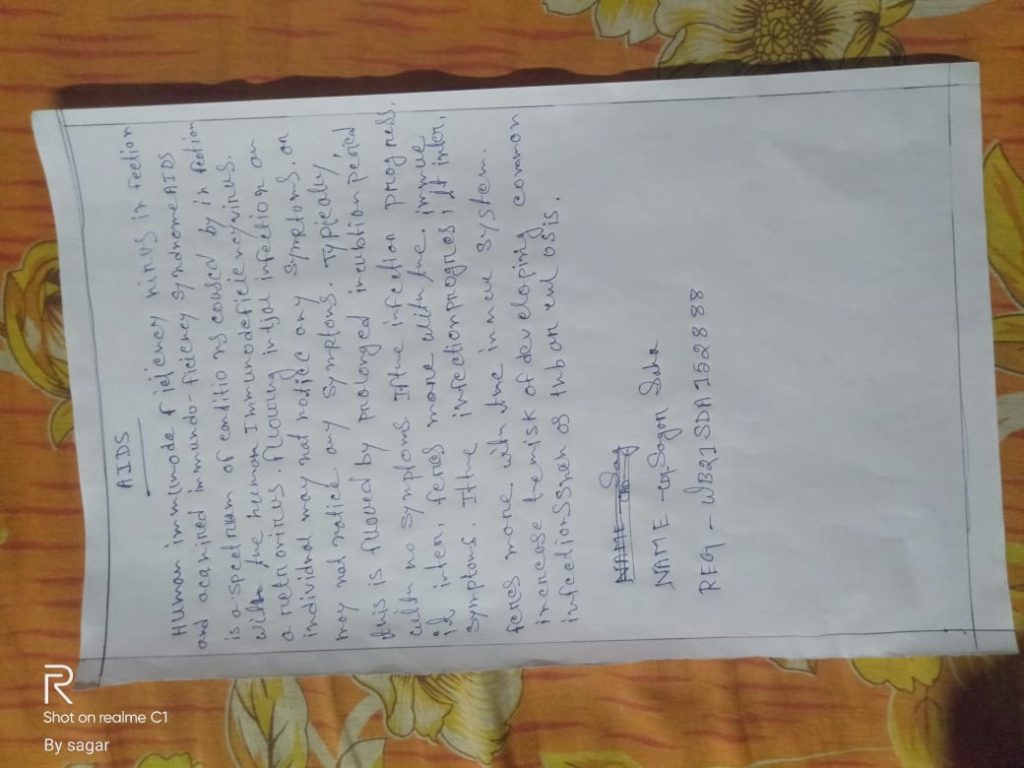 AIDS
Human immunode ficiency virus in fection
and acquired immundo-ficiency syndrome AIDS
is a spectrum of conditions caused by in fection
with the human Immunodeficiency virus.
a retrovirus. Following intial infection an
individual may not notice any symptoms. or
may not notice any symptoms. Typically,
this is followed by prolonged incubtion period
with no symptoms If the infection progress,
it inter, feres more with the. immue
symptoms. If the infection progres, it inter,
feres more with the immue system.
increase the risk of developing common
infections such as tuberculosis.
NAME - Sagar Saha
REG - WB21SDA152888
R
Shot on realme C1
By sagar